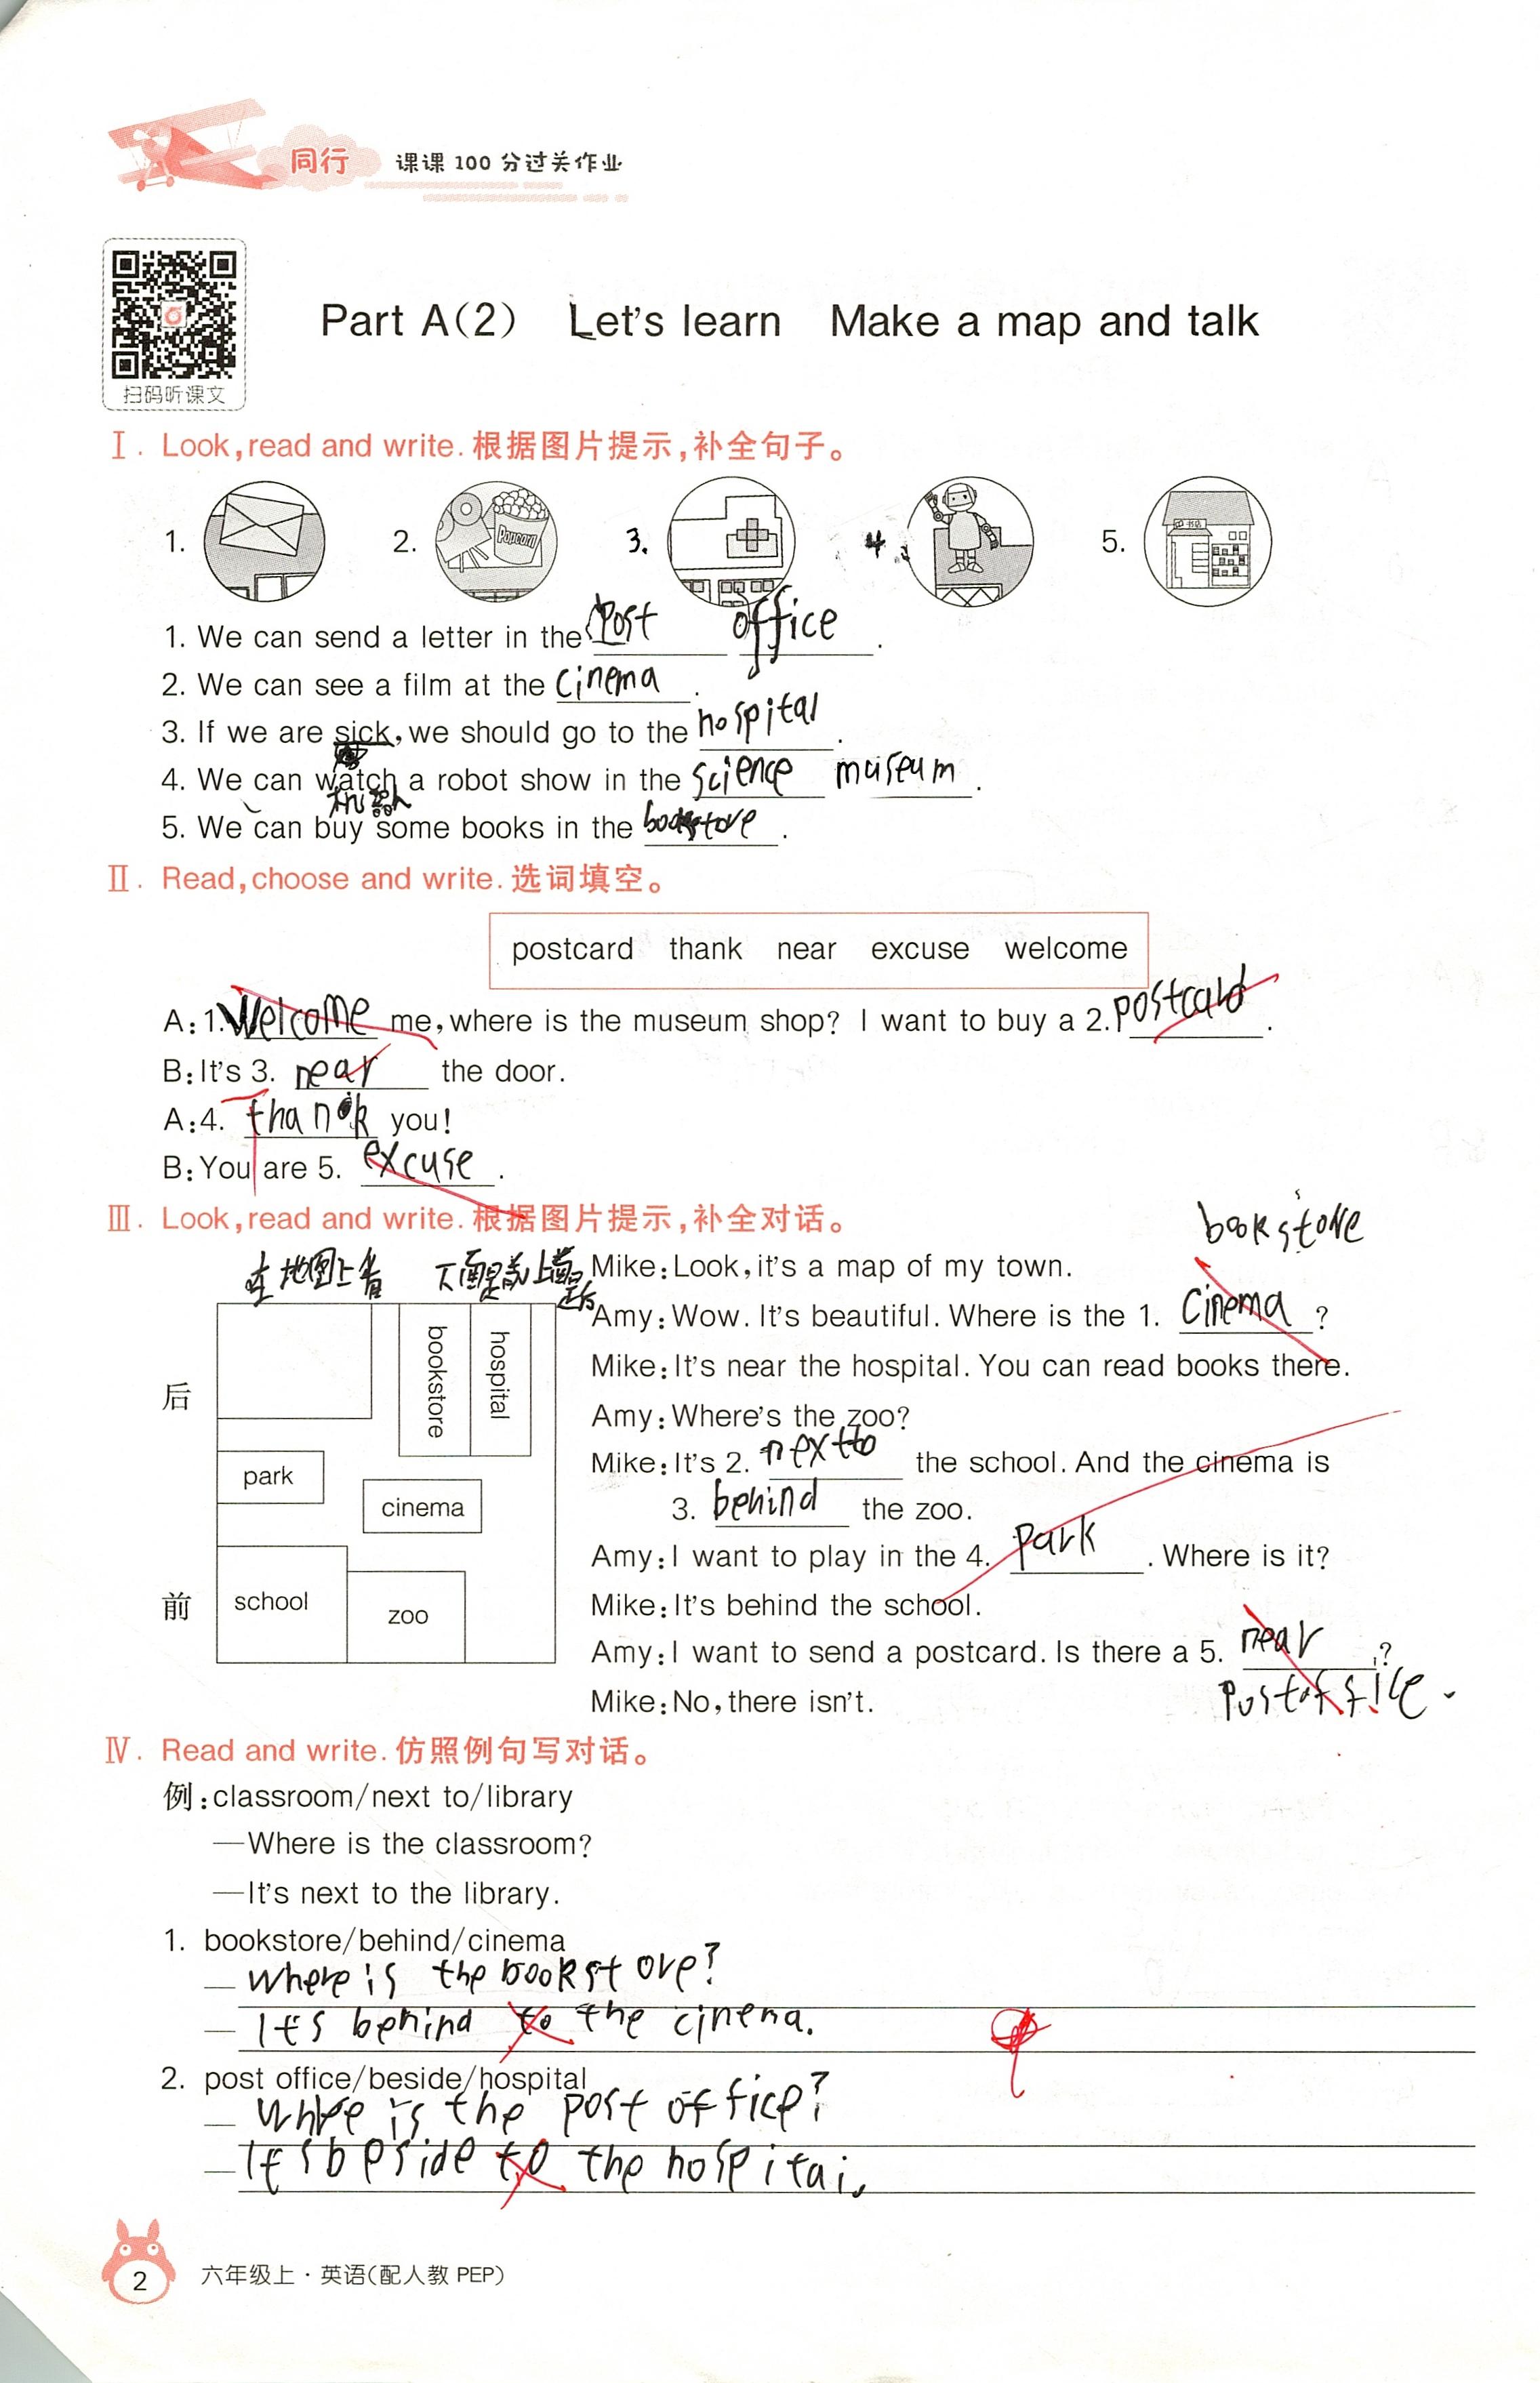 同行 课课 100 分过关作业
扫码听课文
Part A(2) Let's learn Make a map and talk
Ⅰ. Look, read and write. 根据图片提示,补全句子。
1. 2. Popcorn 3. 4. 5. 书店
1. We can send a letter in the post office.
2. We can see a film at the cinema.
3. If we are sick, we should go to the hospital.
4. We can watch a robot show in the science museum.
机器人
5. We can buy some books in the bookstore.
Ⅱ. Read, choose and write. 选词填空。
postcard thank near excuse welcome
A: 1. Welcome me, where is the museum shop? I want to buy a 2. postcard.
B: It's 3. near the door.
A: 4. thank you!
B: You are 5. excuse.
Ⅲ. Look, read and write. 根据图片提示,补全对话。
在地图上看 下面是前上面是后
后
前
bookstore
hospital
park
cinema
school
zoo
Mike: Look, it's a map of my town.
bookstore
Amy: Wow. It's beautiful. Where is the 1. cinema?
Mike: It's near the hospital. You can read books there.
Amy: Where's the zoo?
Mike: It's 2. next to the school. And the cinema is
3. behind the zoo.
Amy: I want to play in the 4. park. Where is it?
Mike: It's behind the school.
Amy: I want to send a postcard. Is there a 5. near?
post office.
Mike: No, there isn't.
Ⅳ. Read and write. 仿照例句写对话。
例: classroom/next to/library
—Where is the classroom?
—It's next to the library.
1. bookstore/behind/cinema
— where is the bookstore?
— It's behind to the cinema.
2. post office/beside/hospital
— where is the post office?
— It's beside to the hospitai.
2 六年级上·英语(配人教 PEP)